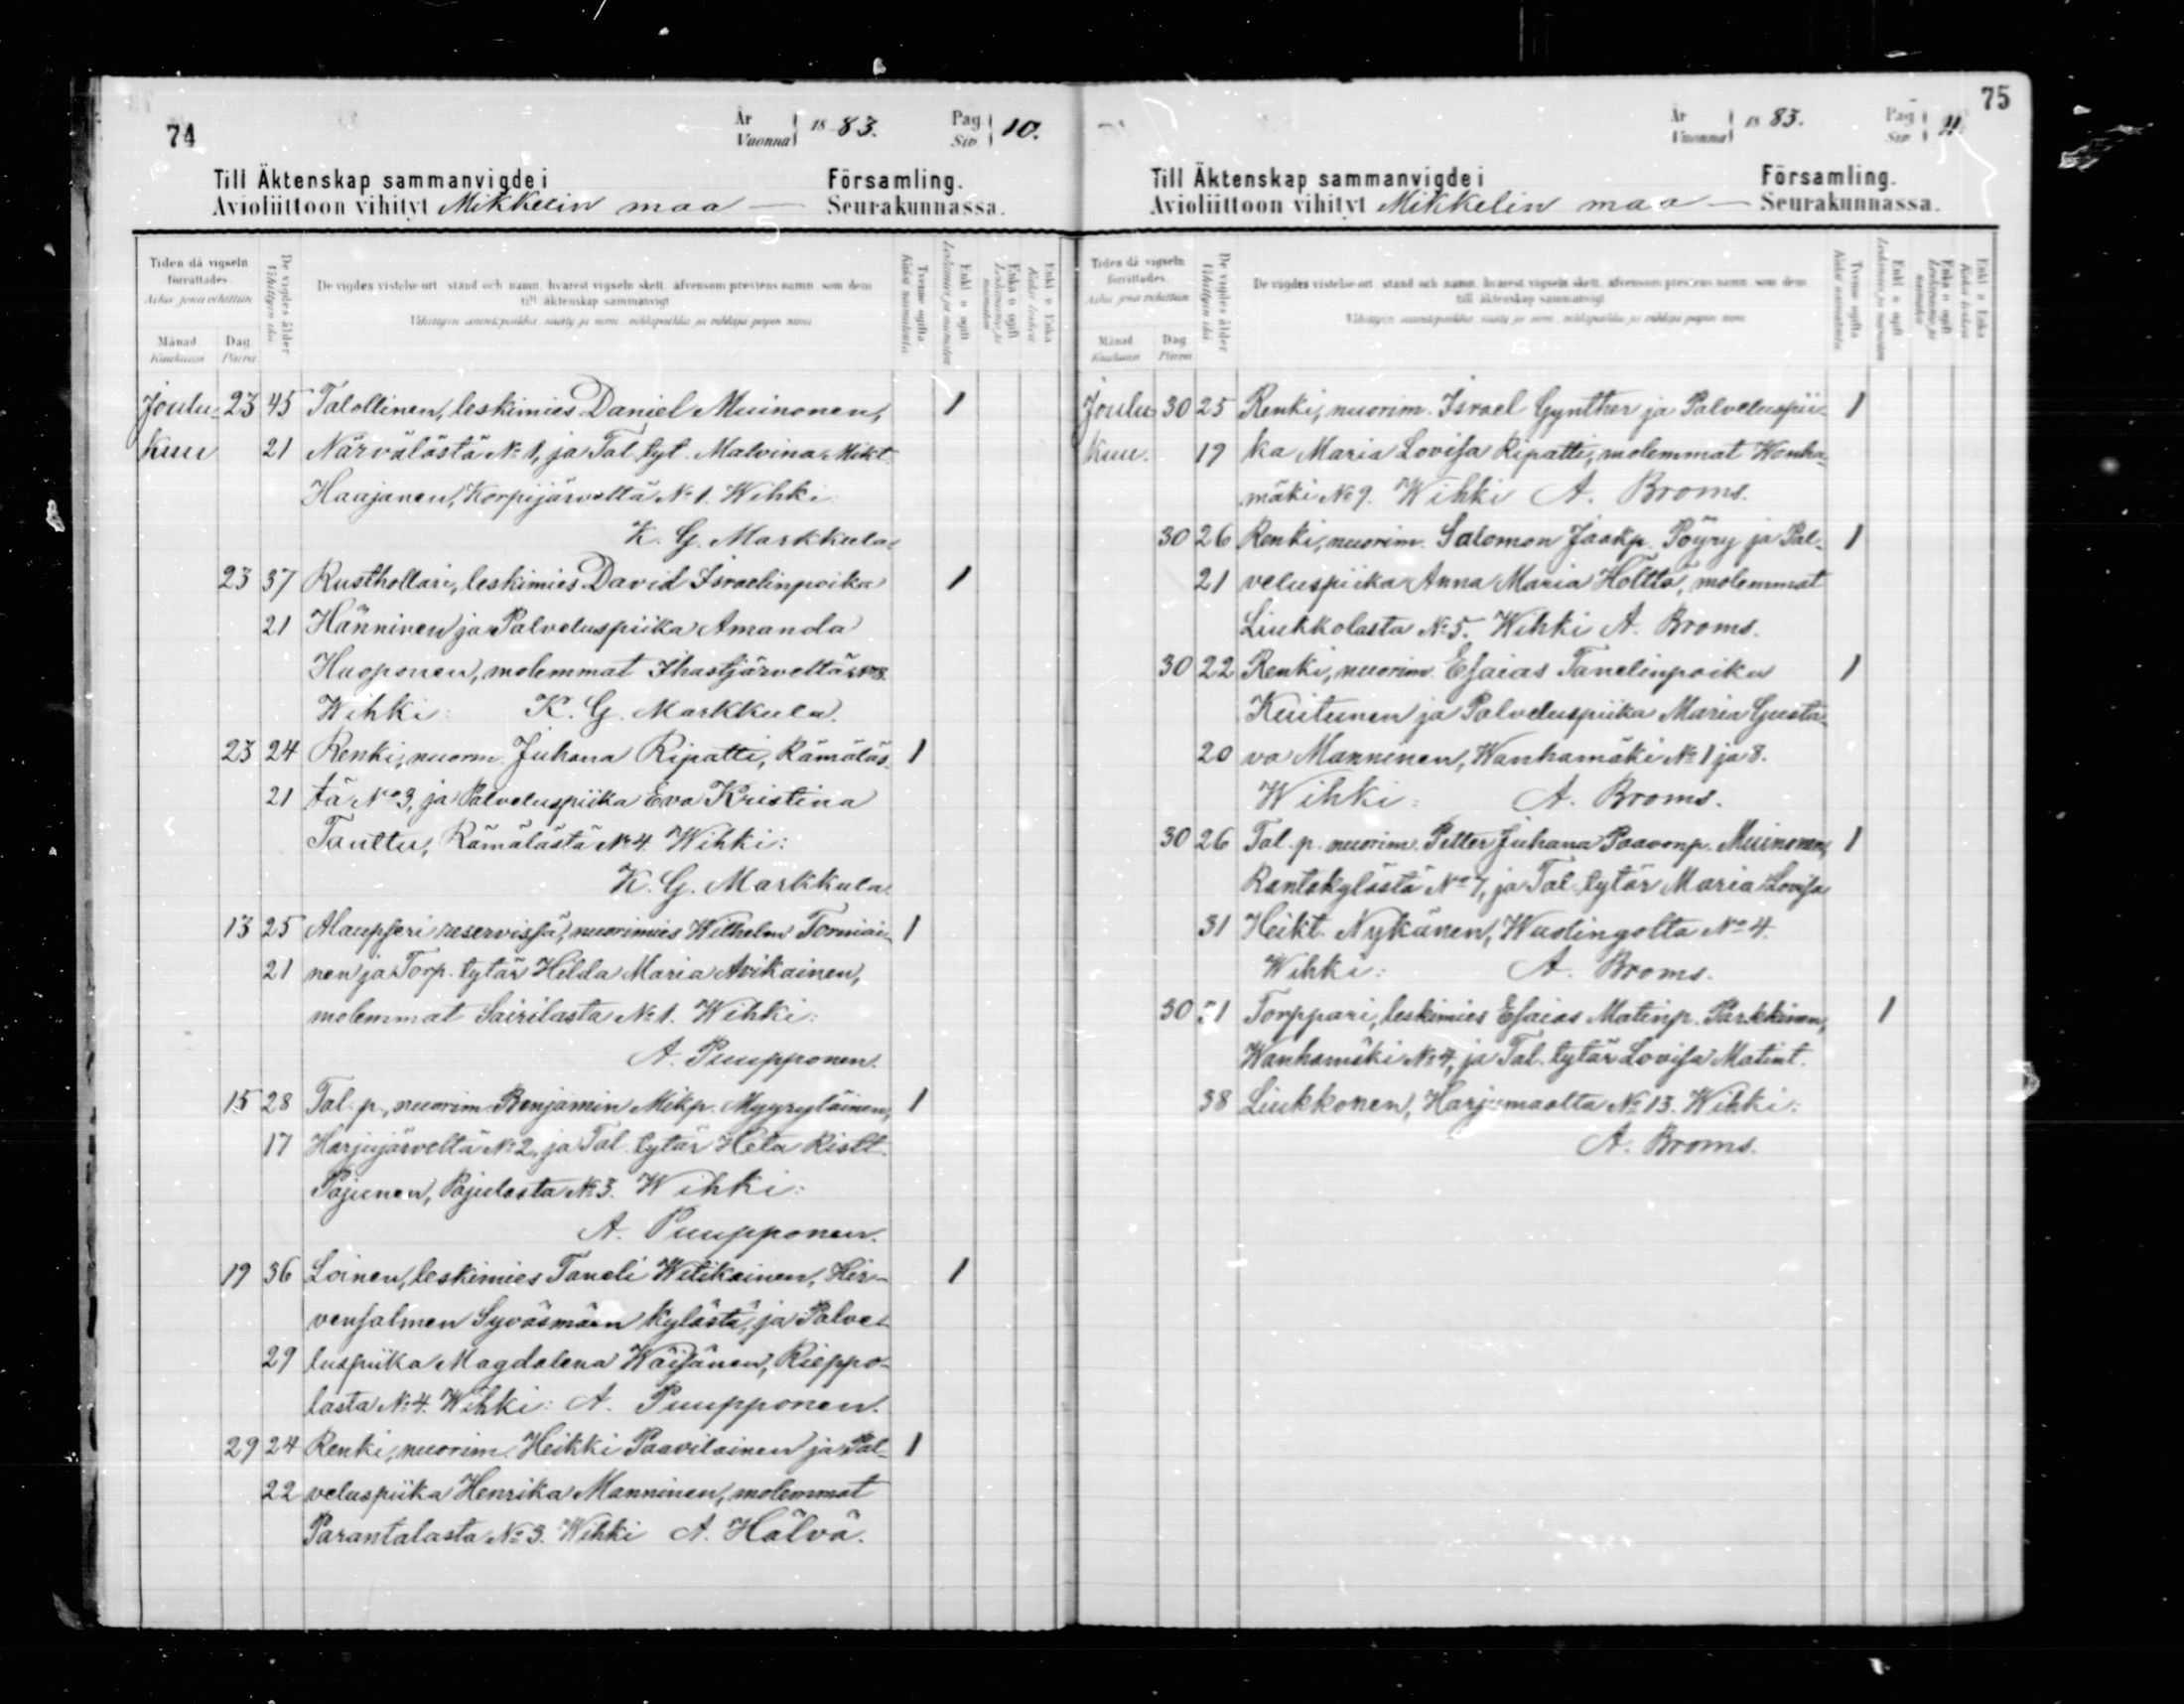 74
År Vuonna 1883. Pag Siv. 10.
Till Äktenskap sammanvigde i Församling.
Avioliittoon vihityt Mikkelin maa — Seurakunnassa.
Tiden då vigseln förrättades.
Aika, jona vihittiin
Månad Dag
Kuukausi Päivä
De vigdes ålder
Vihittyin ikä
De vigdes vistelse ort, stånd och namn, hvarest vigseln skett, äfvensom prestens namn, som dem
till äktenskap sammanvigt
Vihittyin asuntopaikka, sääty ja nimi, vihkipaikka ja vihkijä papin nimi
Tvenne ogifta.
Enkl. o. ogift
Enka o. ogift
Enkl. o. Enka
Joulu- 23 45 Talollinen, leskimies Daniel Muinonen, 1
kuu 21 Närvälästä No 1, ja Tal. tyt. Malvina Mikt.
Haajanen, Korpijärveltä No 1. Wihki:
K. G. Markkula.
23 37 Rusthollari, leskimies David Israelinpoika 1
21 Hänninen ja Palveluspiika Amanda
Huoponen, molemmat Ihastjärveltä No 8.
Wihki: K. G. Markkula.
23 24 Renki, nuorm. Juhana Ripatti, Rämäläs- 1
21 tä No 3, ja Palveluspiika Eva Kristina
Taultu, Rämälästä No 4. Wihki:
K. G. Markkula.
13 25 Alaupseri reservissä, nuorimies Wilhelm Torniai- 1
21 nen ja Torp. tytär Hilda Maria Avikainen,
molemmat Sairilasta No 1. Wihki:
A. Puupponen.
15 28 Tal. p., nuorim. Benjamin Mikp. Myyryläinen, 1
17 Harjujärveltä No 2, ja Tal. tytär Heta Ristt.
Pajunen, Pajulasta No 3. Wihki:
A. Puupponen.
19 36 Loinen, leskimies Taneli Witikainen, Hir- 1
vensalmen Syväsmäen kylästä, ja Palve-
29 luspiika Magdalena Wäisänen, Rieppo-
lasta No 4. Wihki: A. Puupponen.
29 24 Renki, nuorim. Heikki Paavilainen ja Pal- 1
22 veluspiika Henrika Manninen, molemmat
Parantalasta No 3. Wihki A. Hälvä.
75
År Vuonna 1883. Pag Siv. 11.
Till Äktenskap sammanvigde i Församling.
Avioliittoon vihityt Mikkelin maa — Seurakunnassa.
Tiden då vigseln förrättades.
Aika, jona vihittiin
Månad Dag
Kuukausi Päivä
De vigdes ålder
Vihittyin ikä
De vigdes vistelse ort, stånd och namn, hvarest vigseln skett, äfvensom prestens namn, som dem
till äktenskap sammanvigt
Vihittyin asuntopaikka, sääty ja nimi, vihkipaikka ja vihkijä papin nimi
Tvenne ogifta
Enkl. o. ogift
Enka o. ogift
Enkl. o. Enka
Joulu- 30 25 Renki, nuorim. Israel Gynther ja Palveluspii- 1
kuu. 19 ka Maria Lovisa Ripatti, molemmat Wanha-
mäki No 9. Wihki A. Broms.
30 26 Renki, nuorim. Salomon Jaakp. Pöyry ja Pal- 1
21 veluspiika Anna Maria Hölttä, molemmat
Liukkolasta No 5. Wihki A. Broms.
30 22 Renki, nuorim. Esaias Tanelinpoika 1
Kuitunen ja Palveluspiika Maria Gusta-
20 va Manninen, Wanhamäki No 1 ja 8.
Wihki: A. Broms.
30 26 Tal. p. nuorim. Petter Juhana Paavonp. Muinonen, 1
Rantakylästä No 7, ja Tal. tytär Maria Lovisa
31 Heikt. Nykänen, Wuolingolta No 4.
Wihki: A. Broms.
30 Torppari, leskimies Esaias Matinp. Parkkinen, 1
Wanhamäki No 4, ja Tal. tytär Lovisa Matint.
38 Liukkonen, Harjumaalta No 13. Wihki:
A. Broms.